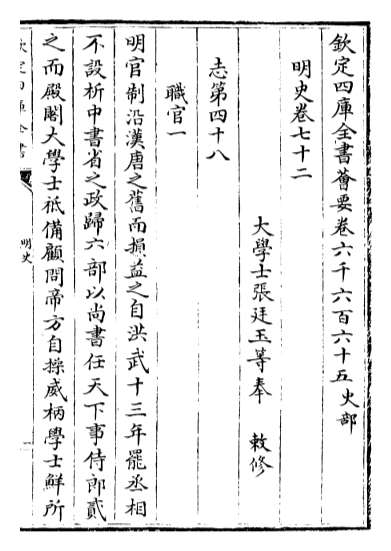 欽定四庫全書薈要卷六千六百六十五 史部
明史卷七十二
大學士張廷玉等奉 敕修
志第四十八
職官一
明官制沿漢唐之舊而損益之自洪武十三年罷丞相
不設析中書省之政歸六部以尚書任天下事侍郎貳
之而殿閣大學士祇備顧問帝方自操威柄學士鮮所
欽定四庫全書
明史
一